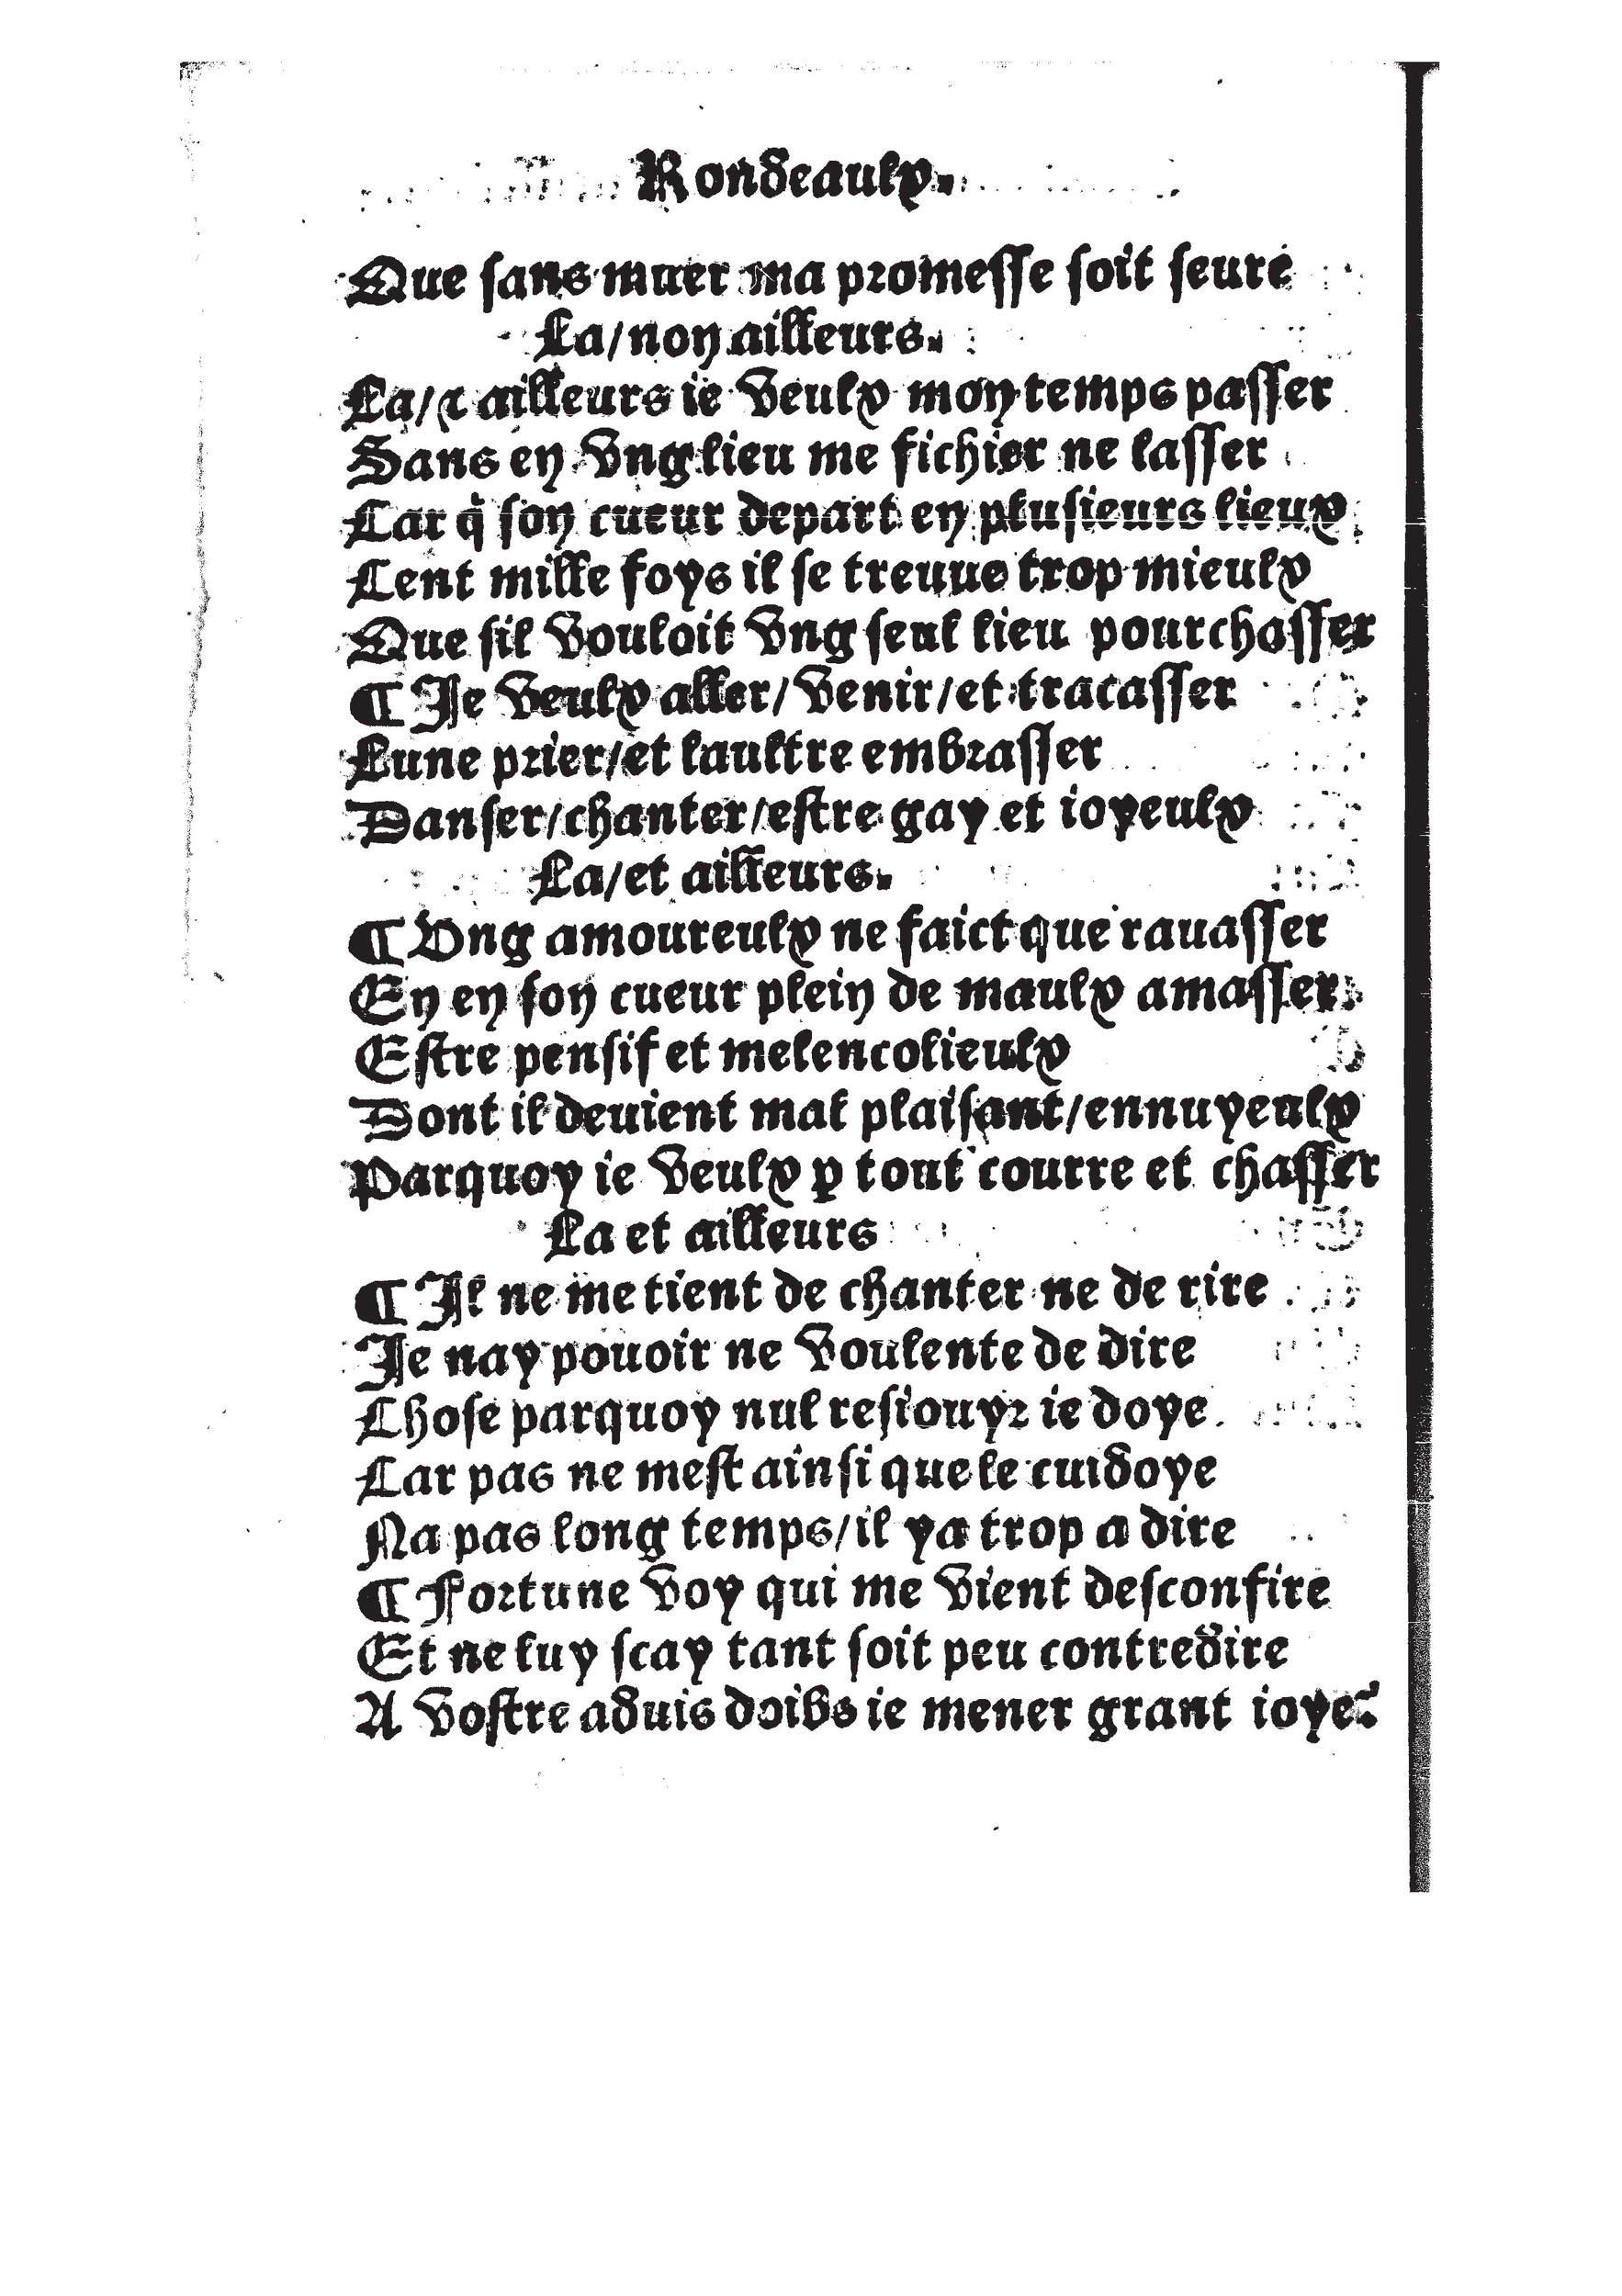 Rondeaulx.
Que sans muer ma promesse soit seure
La/non ailleurs.
La/⁊ ailleurs ie veulx mon temps passer
Sans en vng lieu me fichier ne lasser
Car q̃ son cueur depart en plusieurs lieux
Cent mille foys il se treuue trop mieulx
Que sil vouloit vng seul lieu pourchasser
¶ Je veulx aller/venir/et tracasser
Lune prier/et laultre embrasser
Danser/chanter/estre gay et ioyeulx
La/et ailleurs.
¶ Vng amoureulx ne faict que rauasser
En en son cueur plein de maulx amasser
Estre pensif et melencolieulx
Dont il deuient mal plaisant/ennuyeulx
Parquoy ie veulx ꝑ tout courre et chasser
La et ailleurs
¶ Il ne me tient de chanter ne de rire
Je nay pouoir ne voulente de dire
Chose parquoy nul resiouyr ie doye
Car pas ne mest ainsi que le cuidoye
Na pas long temps/il ya trop a dire
¶ Fortune voy qui me vient desconfire
Et ne luy scay tant soit peu contredire
A vostre aduis doibs ie mener grant ioye?